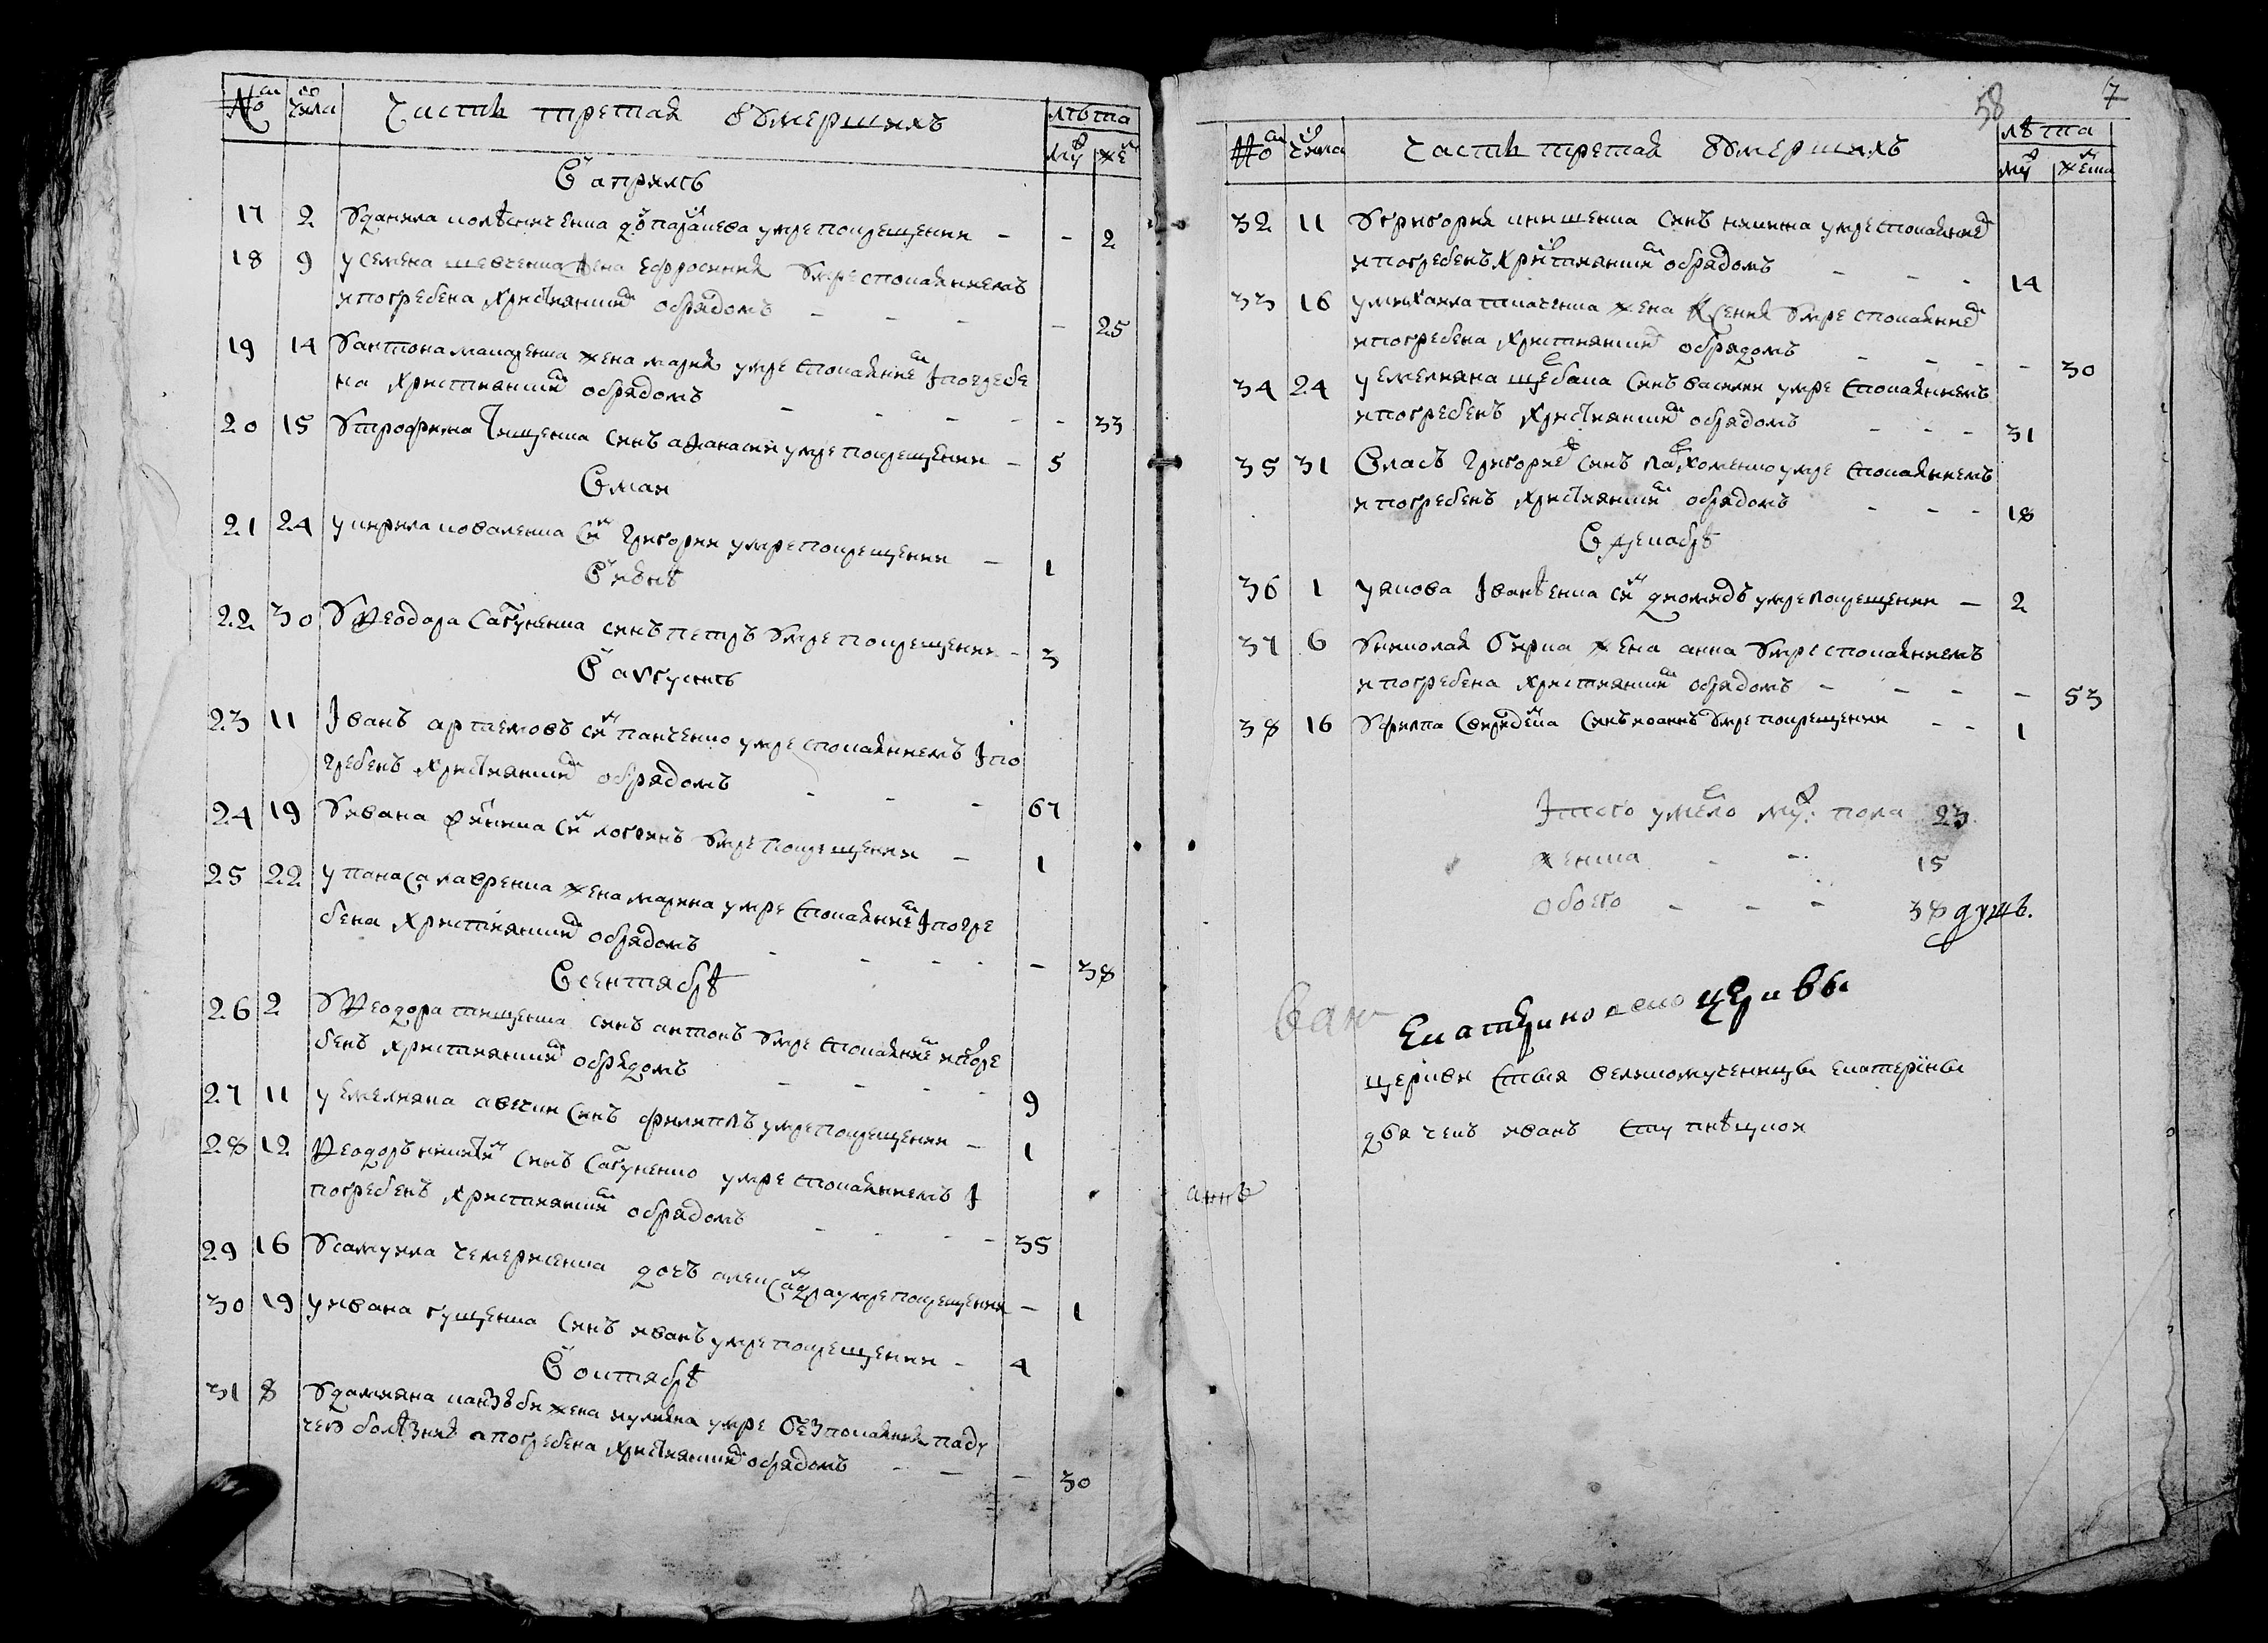 № числа Часть третая Умершихъ лѣта
му же
В априлѣ
17 2 У данила колѣсниченка до параскева умре покрещении - - 2
18 9 у семена шевченка жена ефросиния умре спокаяниемъ
и погребена християнским обрядомъ - - - - 25
19 14 У антона макаренка жена мария умре спокаяние I погребе
на християнским обрядомъ - - - - - 33
20 15 У трофима тищенка синъ афанасий умре покрещении - 5
В маи
21 24 у кирила коваленка си григорий умре покрещении - 1
В июнѣ
22 30 У Феодора Сагуненка синъ петръ умре покрещении - 3
В августѣ
23 11 Iванъ артемовъ си панченко умре спокаяниемъ I по
гребенъ християнским обрядомъ - - - 67
24 19 У ивана си логвинъ умре покрещении - 1
25 22 у панаса лавренка жена марина умре спокаяние I погре
бена християнским обрядомъ - - - - - 38
В сентябрѣ
26 2 У Феодора тищенка синъ антонъ умре спокаяние и погре
бенъ християнским обрядомъ - - - - 9
27 11 у емелияна синъ филиппъ умре покрещении - 1
28 12 Феодоръ синъ Сагуненко умре спокаяниемъ I
погребенъ християнским обрядомъ - - - - 35
29 16 У самуила чемерисенка дочъ александра умре покрещении - 1
30 19 у ивана гущенка синъ иванъ умре покрещении - 4
В октябрѣ
31 8 У дамияна жена иулияна умре без покаяния паду
чею болѣзния а погребена християнским обрядомъ - - - 30
58 7
№ числа Часть третая Умершихъ лѣта
му женска
32 11 У григория синъ никита умре спокаянием
и погребенъ християнским обрядомъ - - - 14
33 16 у михаила ткаченка жена Ксения умре спокаянием
и погребена християнским обрядомъ - - - - 30
34 24 у емелияна щебака синъ василий умре спокаяниемъ
и погребенъ християнским обрядомъ - - - 31
35 31 Власъ григорие синъ пархоменко умре спокаяниемъ
и погребенъ християнским обрядомъ - - - 18
В декабрѣ
36 1 у якова Iванѣенка си диомидъ умре покрещении - 2
37 6 У николая бирка жена анна умре спокаяниемъ
и погребена християнским обрядомъ - - - - 53
38 16 У филпа Свириденка синъ иоаннъ умре покрещении - - 1
Iтого умерло му: пола 23
женска - - 15
обоего - - - 38 душъ.
церкви
церкви стыя великомученицы екатерины
дячекъ иванъ